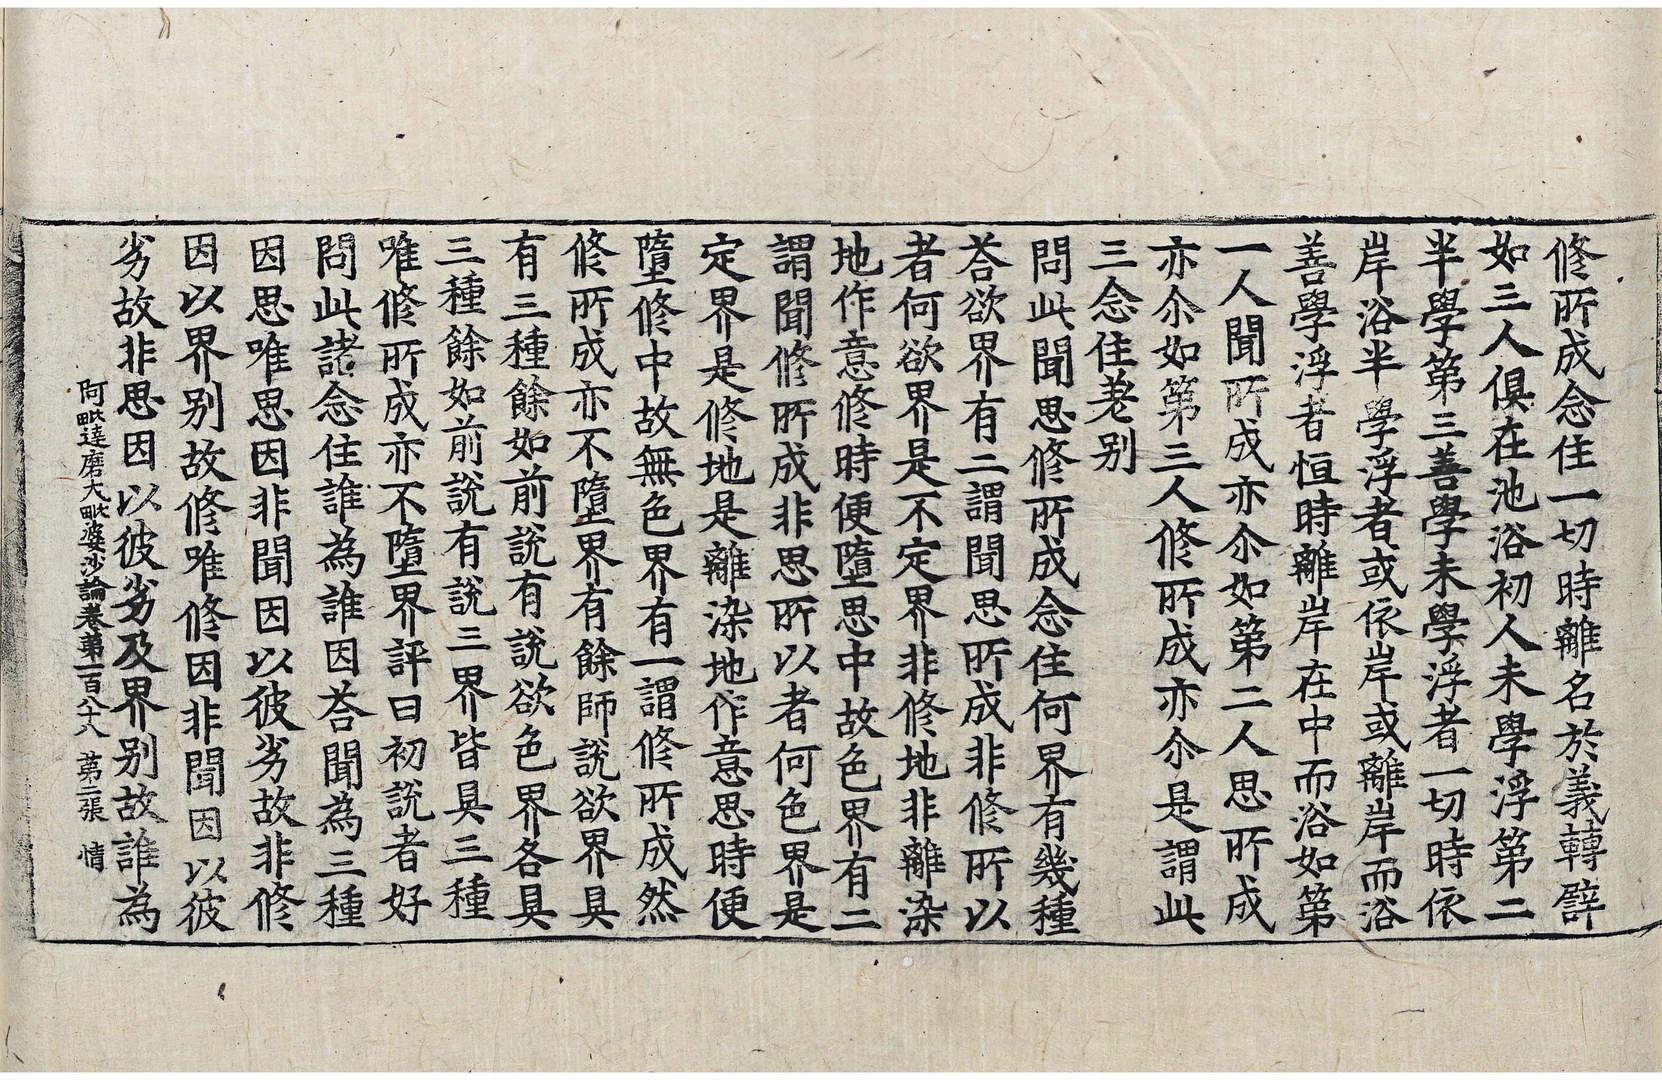 修所成念住一切時離名於義轉辟
如三人俱在池浴初人未學浮第二
半學第三善學未學浮者一切時依
岸浴半學浮者或依岸或離岸而浴
善學浮者恒時離岸在中而浴如第
一人聞所成亦尒如第二人思所成
亦尒如第三人修所成亦尒是謂此
三念住差别
問此聞思修所成念住何界有幾種
荅欲界有二謂聞思所成非修所以
者何欲界是不定界非修地非離染
地作意修時便墮思中故色界有二
謂聞修所成非思所以者何色界是
定界是修地是離染地作意思時便
墮修中故無色界有一謂修所成然
修所成亦不墮界有餘師說欲界具
有三種餘如前說有說欲色界各具
三種餘如前說有說三界皆具三種
唯修所成亦不墮界評曰初說者好
問此諸念住誰為誰因荅聞為三種
因思唯思因非聞因以彼劣故非修
因以界别故修唯修因非聞因以彼
劣故非思因以彼劣及界别故誰為
阿毗達磨大毗婆沙論卷第一百八十八 第二張 情